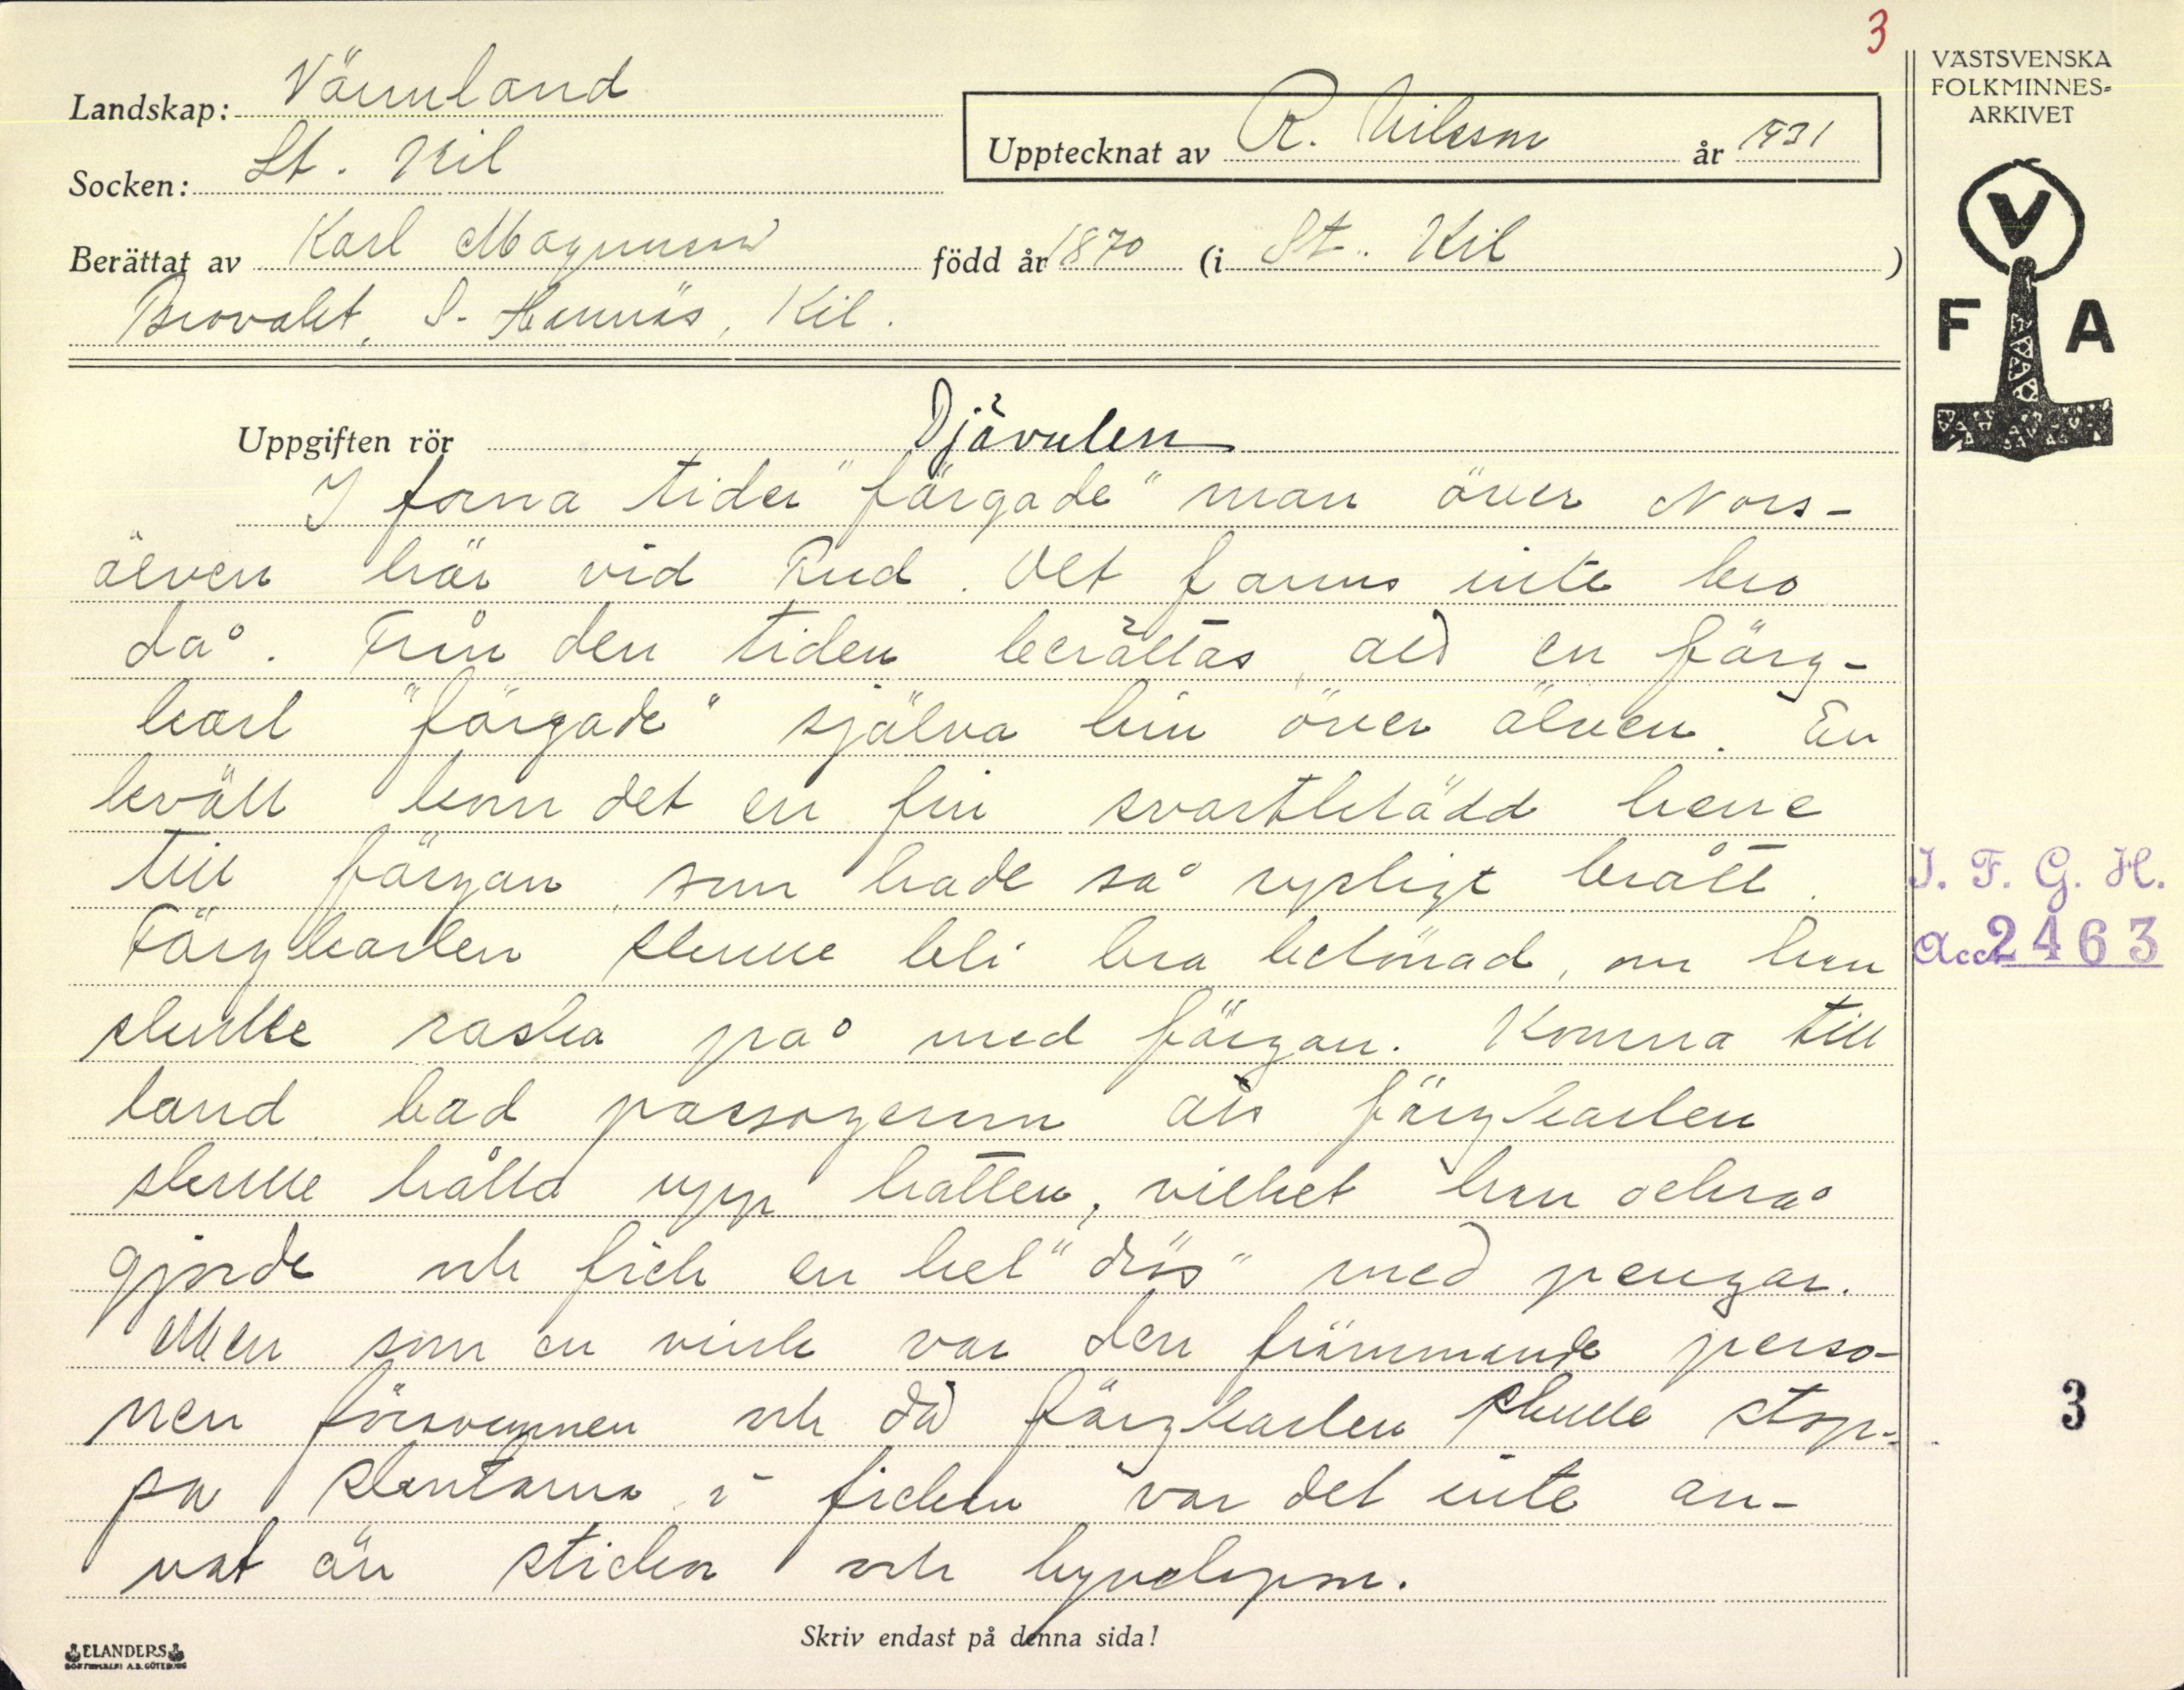 3
VÄSTSVENSKA
FOLKMINNES-
ARKIVET
Landskap: Värmland
Socken: St. Kil
Upptecknat av R. Nilsson år 1931
Berättat av Karl Magnusson född år 1870 (i St. Kil)
Brovalet, S. Hannäs, Kil.
V
F A
Uppgiften rör Djävulen
I forna tider "färgade" man över Nors-
älven här vid Rud. Det fanns inte bro
då. Från den tiden berättas att en färg-
karl "färgade" själva hin över älven. En
kväll kom det en fin svartklädd herre
till färgan som hade så rysligt brått.
Färgkarlen skulle bli bra belönad, om han
skulle raska på med färgan. Komna till
land bad passageraren att färgkarlen
skulle hålla upp hatten, vilket han också
gjorde och fick en hel "drös" med pengar.
Men som en vink var den främmande perso-
nen försvunnen och då färgkarlen skulle stop-
pa slantarna i fickan var det inte an-
nat än stickor och hyvelspån.
I. F. G. H.
Acc. 2463
3
Skriv endast på denna sida!
ELANDERS
BOKTRYCKERI A.B. GÖTEBORG